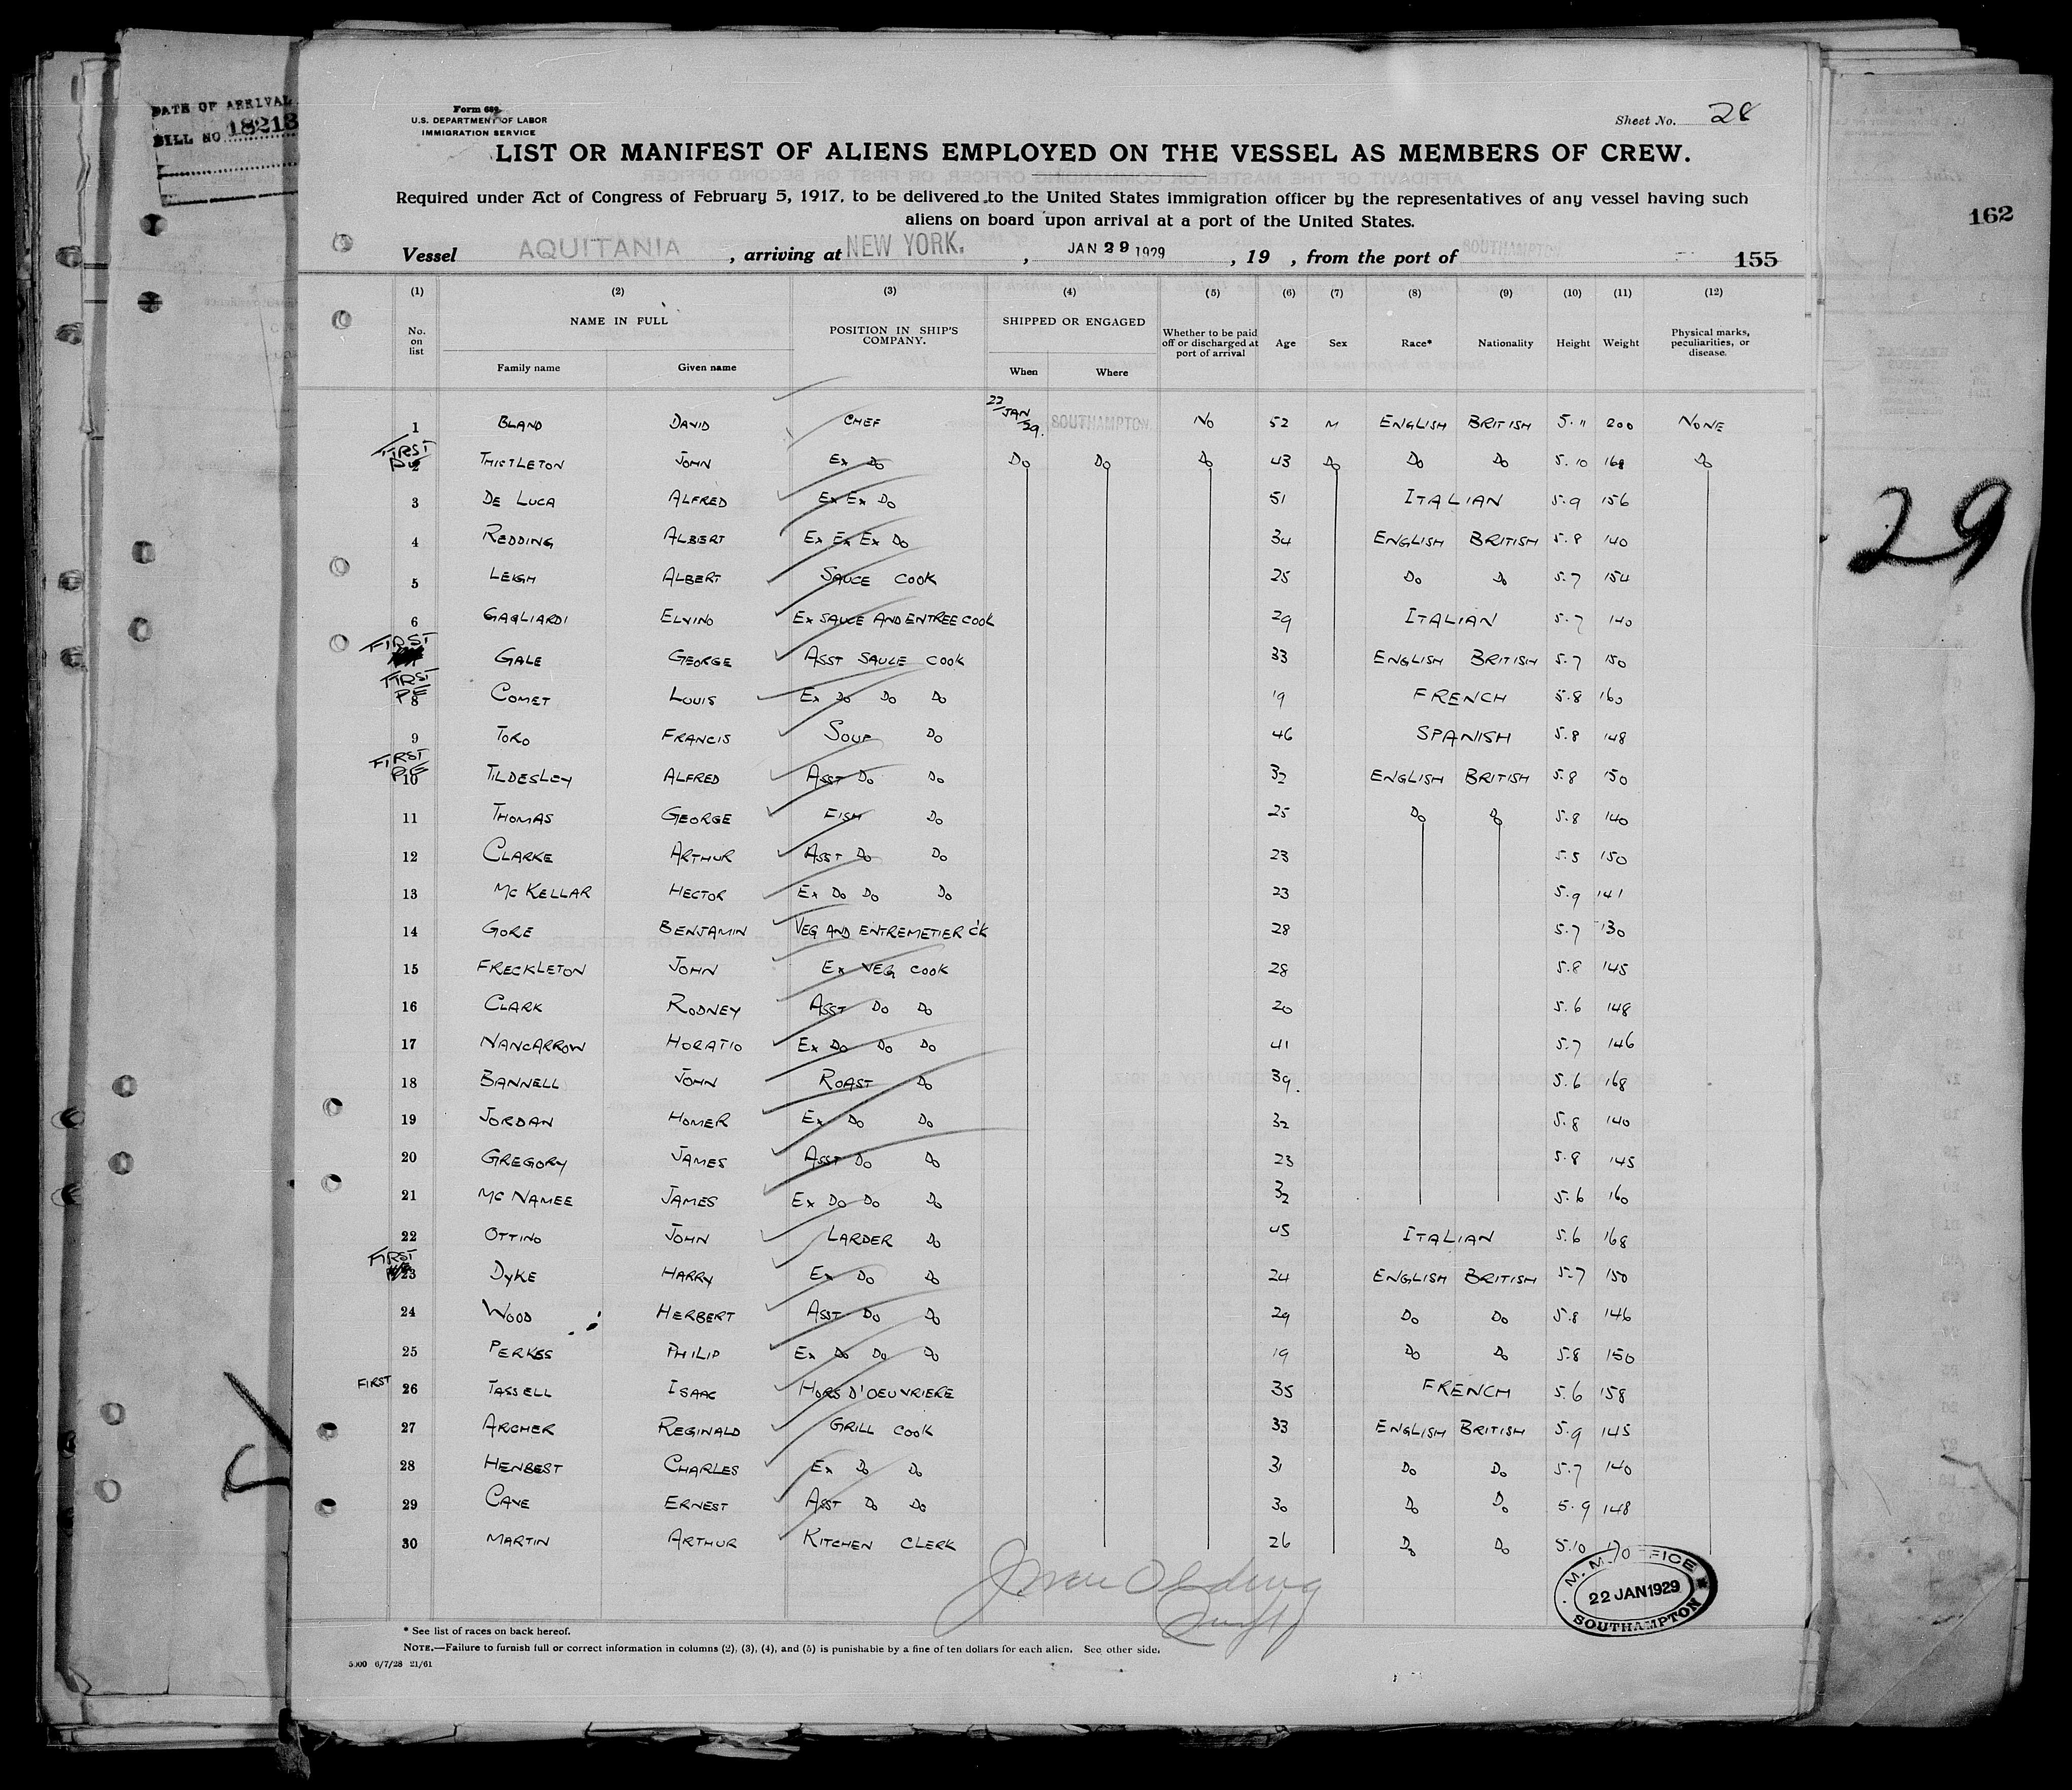 DATE OF ARRIVAL
BILL NO 18213
Form 689
U.S. DEPARTMENT OF LABOR
IMMIGRATION SERVICE
Sheet No. 28
LIST OR MANIFEST OF ALIENS EMPLOYED ON THE VESSEL AS MEMBERS OF CREW.
Required under Act of Congress of February 5, 1917, to be delivered to the United States immigration officer by the representatives of any vessel having such
aliens on board upon arrival at a port of the United States.
162
Vessel AQUITANIA, arriving at NEW YORK., JAN 29 1929, 19 , from the port of SOUTHAMPTON 155
(1) (2) (3) (4) (5) (6) (7) (8) (9) (10) (11) (12)
No. on list NAME IN FULL POSITION IN SHIP'S COMPANY. SHIPPED OR ENGAGED Whether to be paid off or discharged at port of arrival Age Sex Race* Nationality Height Weight Physical marks, peculiarities, or disease.
Family name Given name When Where
1 BLAND DAVID CHEF 22/JAN/29. SOUTHAMPTON. NO 52 M ENGLISH BRITISH 5.11 200 NONE
FIRST 2 THISTLETON JOHN EX DO DO DO DO 43 DO DO DO 5.10 168 DO
3 DE LUCA ALFRED EX EX DO 51 ITALIAN 5.9 156
4 REDDING ALBERT EX EX EX DO 34 ENGLISH BRITISH 5.8 140
5 LEIGH ALBERT SAUCE COOK 25 DO DO 5.7 154
6 GAGLIARDI ELVINO EX SAUCE AND ENTREE COOK 29 ITALIAN 5.7 140
FIRST GALE GEORGE ASST SAUCE COOK 33 ENGLISH BRITISH 5.7 150
FIRST PF 8 COMET LOUIS EX DO DO DO 19 FRENCH 5.8 160
9 TORO FRANCIS SOUP DO 46 SPANISH 5.8 148
FIRST PF 10 TILDESLEY ALFRED ASST DO DO 32 ENGLISH BRITISH 5.8 150
11 THOMAS GEORGE FISH DO 25 DO DO 5.8 140
12 CLARKE ARTHUR ASST DO DO 23 5.5 150
13 MC KELLAR HECTOR EX DO DO DO 23 5.9 141
14 GORE BENJAMIN VEG AND ENTREMETIER C'K 28 5.7 130
15 FRECKLETON JOHN EX VEG COOK 28 5.8 145
16 CLARK RODNEY ASST DO DO 20 5.6 148
17 NANCARROW HORATIO EX DO DO DO 41 5.7 146
18 BANNELL JOHN ROAST DO 39. 5.6 168
19 JORDAN HOMER EX DO DO 32 5.8 140
20 GREGORY JAMES ASST DO DO 23 5.8 145
21 MC NAMEE JAMES EX DO DO DO 32 5.6 160
22 OTTINO JOHN LARDER DO 45 ITALIAN 5.6 168
FIRST 23 DYKE HARRY EX DO DO 24 ENGLISH BRITISH 5.7 150
24 WOOD HERBERT ASST DO DO 29 DO DO 5.8 146
25 PERKES PHILIP EX DO DO DO 19 DO DO 5.8 150
FIRST 26 TASSELL ISAAC HORS D'OEUVRIERE 35 FRENCH 5.6 158
27 ARCHER REGINALD GRILL COOK 33 ENGLISH BRITISH 5.9 145
28 HENBEST CHARLES EX DO DO 31 DO DO 5.7 140
29 CAVE ERNEST ASST DO DO 30 DO DO 5.9 148
30 MARTIN ARTHUR KITCHEN CLERK 26 DO DO 5.10 170
29
M. M. OFFICE
22 JAN 1929
SOUTHAMPTON
* See list of races on back hereof.
NOTE.—Failure to furnish full or correct information in columns (2), (3), (4), and (5) is punishable by a fine of ten dollars for each alien. See other side.
5000 6/7/28 21/61